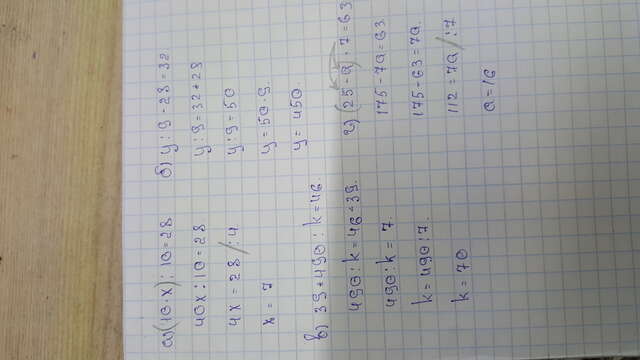 а) (10·x) : 10=28
40x : 10=28
4x = 28 /:4
x = 7
б) y : 9 - 28 = 32
y : 9 = 32 + 28
y : 9 = 50
y = 50·9.
y = 450.
в) 39+490 : k=46.
490 : k = 46-39.
490 : k = 7.
k = 490 : 7.
k = 70
г) (25-a)·7=63
175-7a=63
175-63=7a.
112=7a /:7
a=16